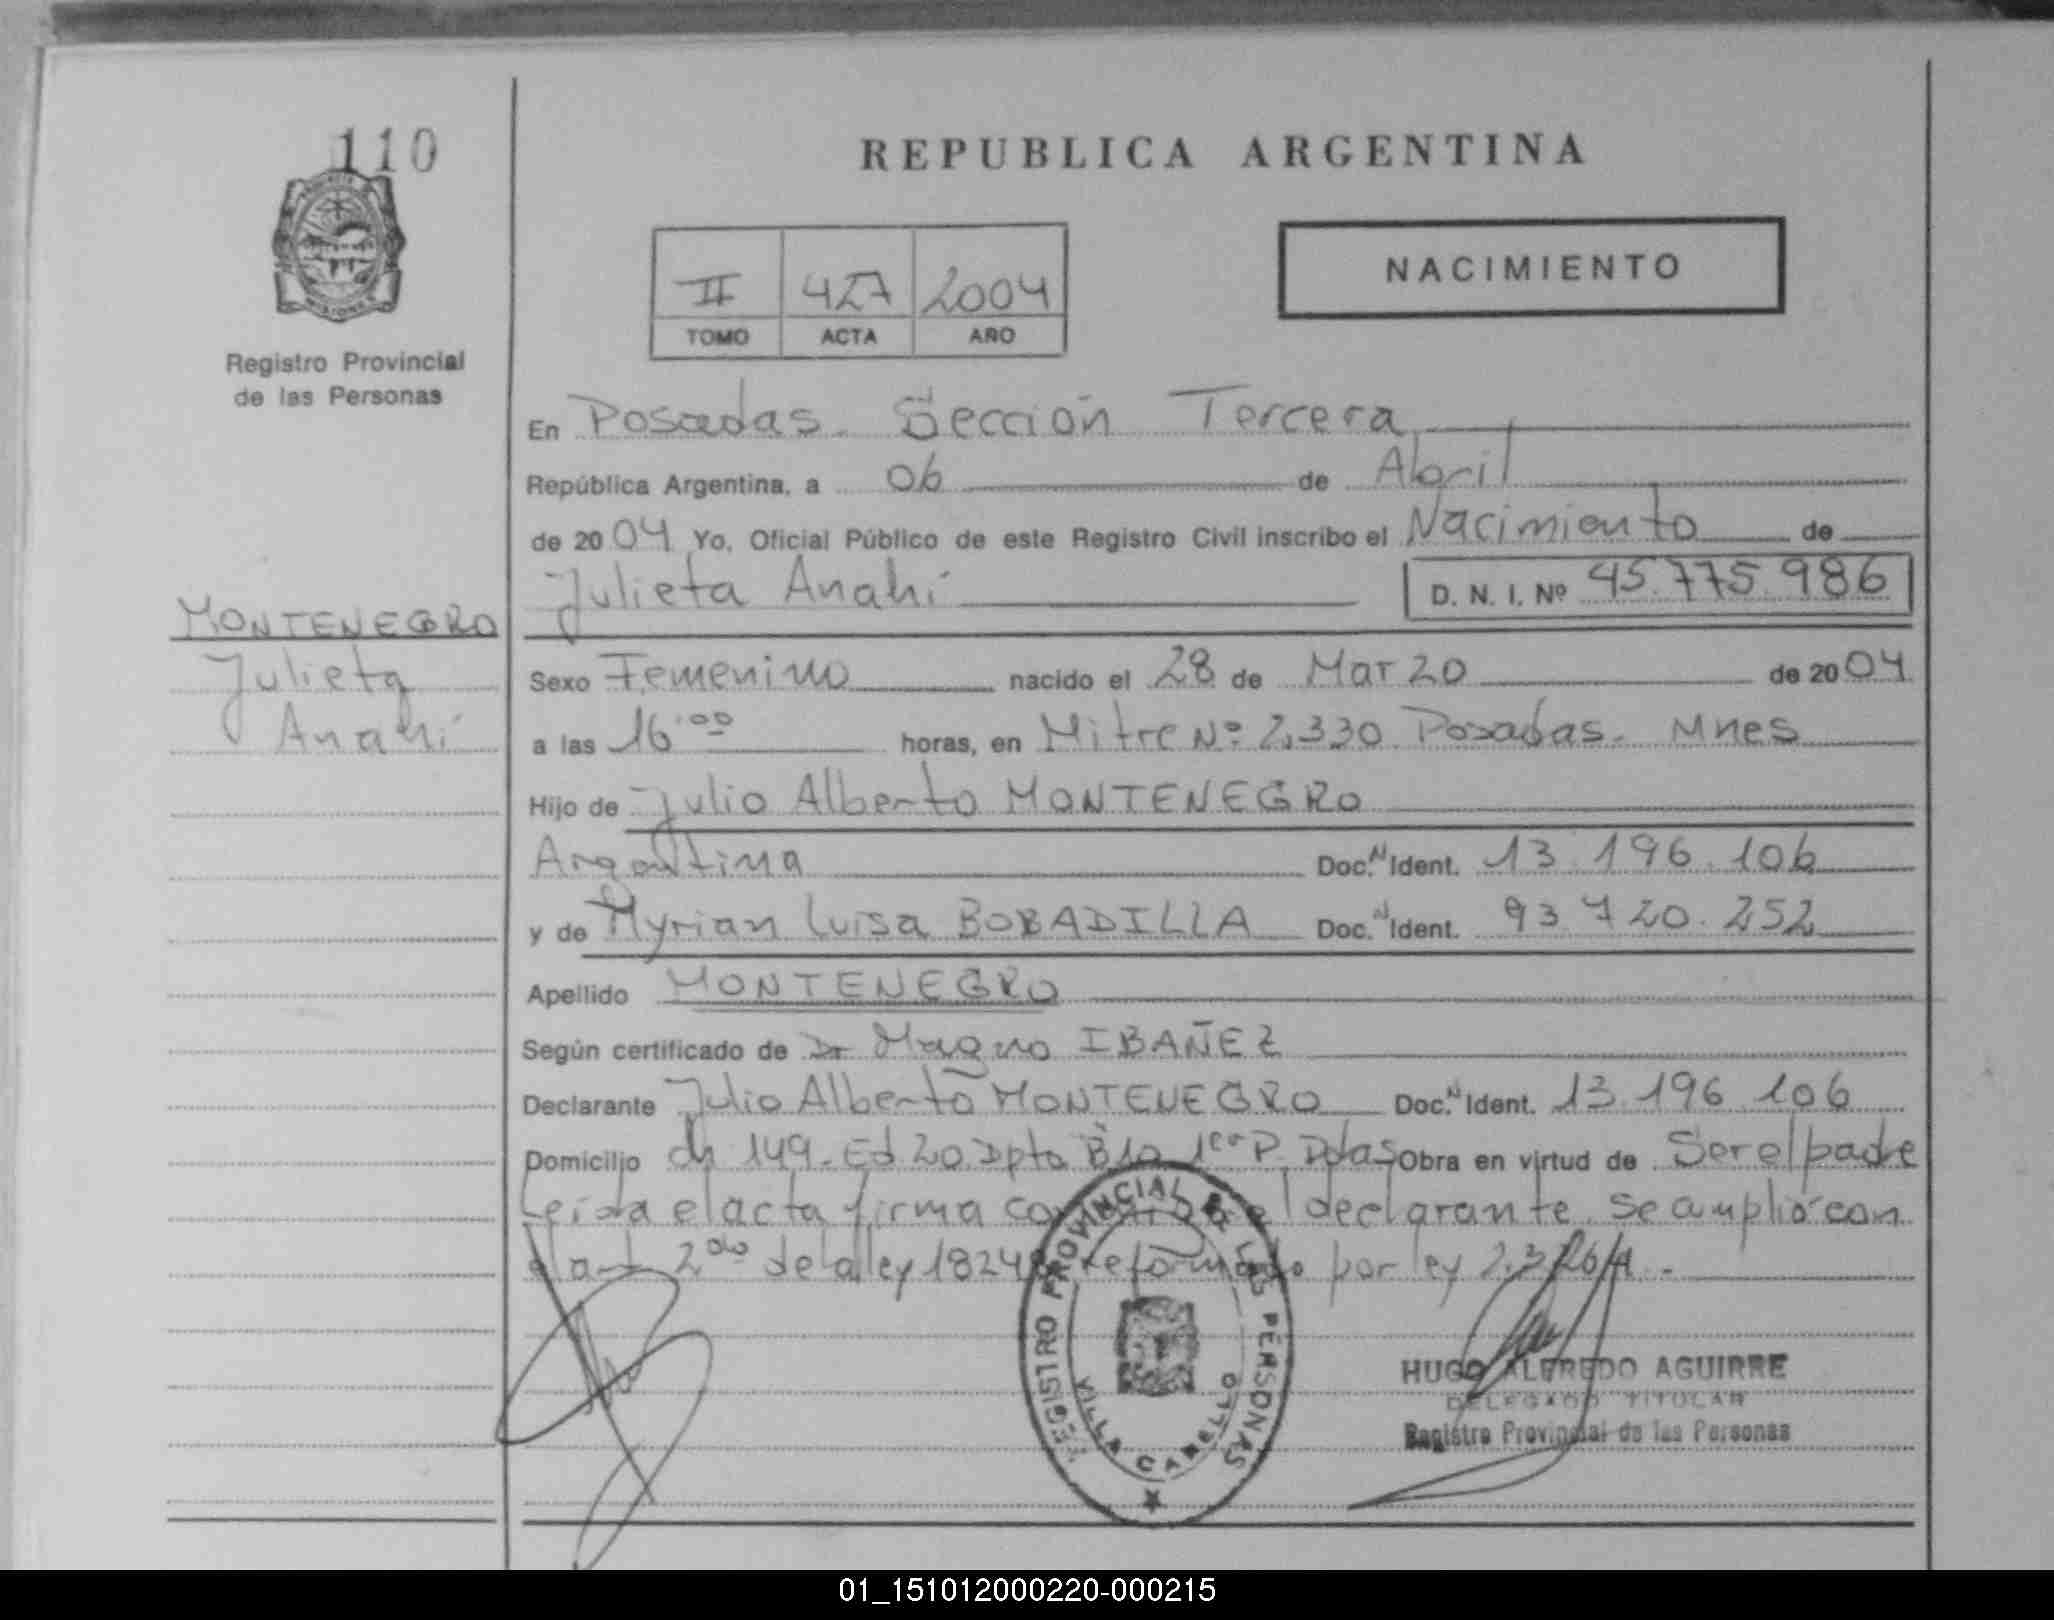 110
REPUBLICA ARGENTINA
II 427 2004
TOMO ACTA AÑO
NACIMIENTO
Registro Provincial
de las Personas
En Posadas. Sección Tercera
República Argentina, a 06 de Abril
de 2004 Yo, Oficial Público de este Registro Civil inscribo el Nacimiento de
Julieta Anahí D. N. I. Nº 45.775.986
MONTENEGRO
Julieta
Anahí
Sexo Femenino nacido el 28 de Marzo de 2004
a las 16:00 horas, en Mitre Nº 2.330 Posadas. Mnes
Hijo de Julio Alberto MONTENEGRO
Argentina Doc. N Ident. 13.196.106
y de Myrian Luisa BOBADILLA Doc. N Ident. 93.720.252
Apellido MONTENEGRO
Según certificado de Dr Magno IBAÑEZ
Declarante Julio Alberto MONTENEGRO Doc. N Ident. 13.196.106
Domicilio ch 149. Ed 20 Dpto B 1er P. Pdas Obra en virtud de Ser el padre
Leída el acta firma el declarante. Se amplió con
el art 2do de la ley 18248 reformado por ley
REGISTRO PROVINCIAL DE LAS PERSONAS
VILLA CABELLO
HUGO ALFREDO AGUIRRE
DELEGADO TITULAR
Registro Provincial de las Personas
01_151012000220-000215